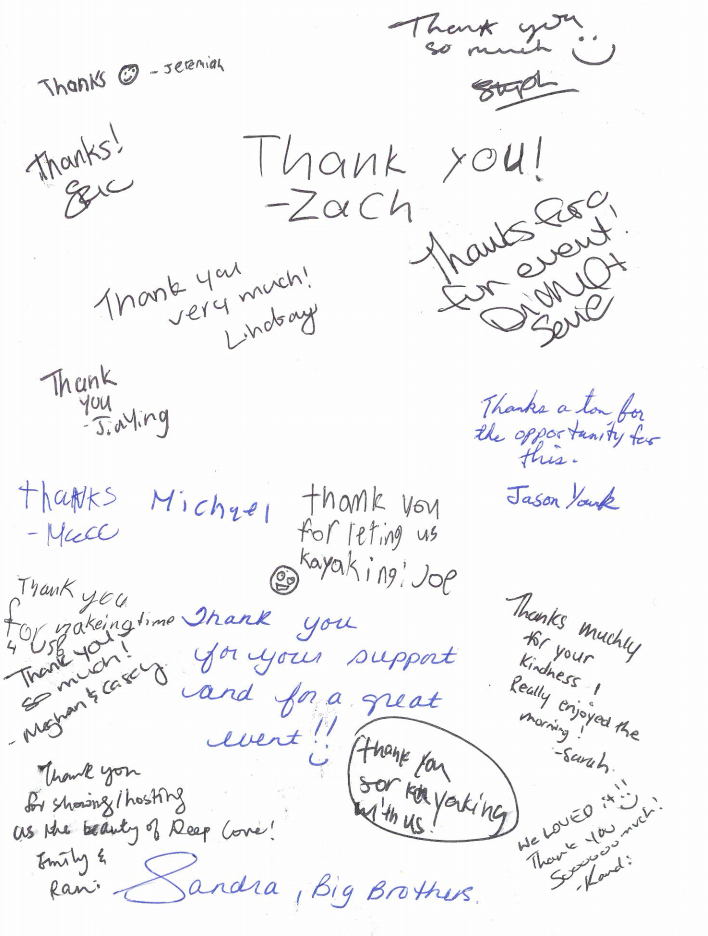 Thank you
so much
Steph
Thanks
- Jeremiah
Thanks!
Eric
Thank you!
-Zach
Thanks for a
fun event!
Thank you
very much!
Lindsay
Thank
you
-JiaYing
Thanks a ton for
the opportunity for
this.
Jason Yourk
thanks
Michael
thank you
for leting us
kayaking! Joe
Thank you
for makeing time
4 us
Thank you
so much!
- Meghan & Casey
Thank you
for your support
and for a great
event!!
Sandra, Big Brothers.
Thanks muchly
for your
kindness!
Really enjoyed the
morning!
-Sarah.
thank you
for kayaking
with us.
Thank you
for showing/hosting
us the beauty of Deep Cove!
Emily &
Rani
We LOVED it!!
Thank you
Soooooo much!
-Kandi